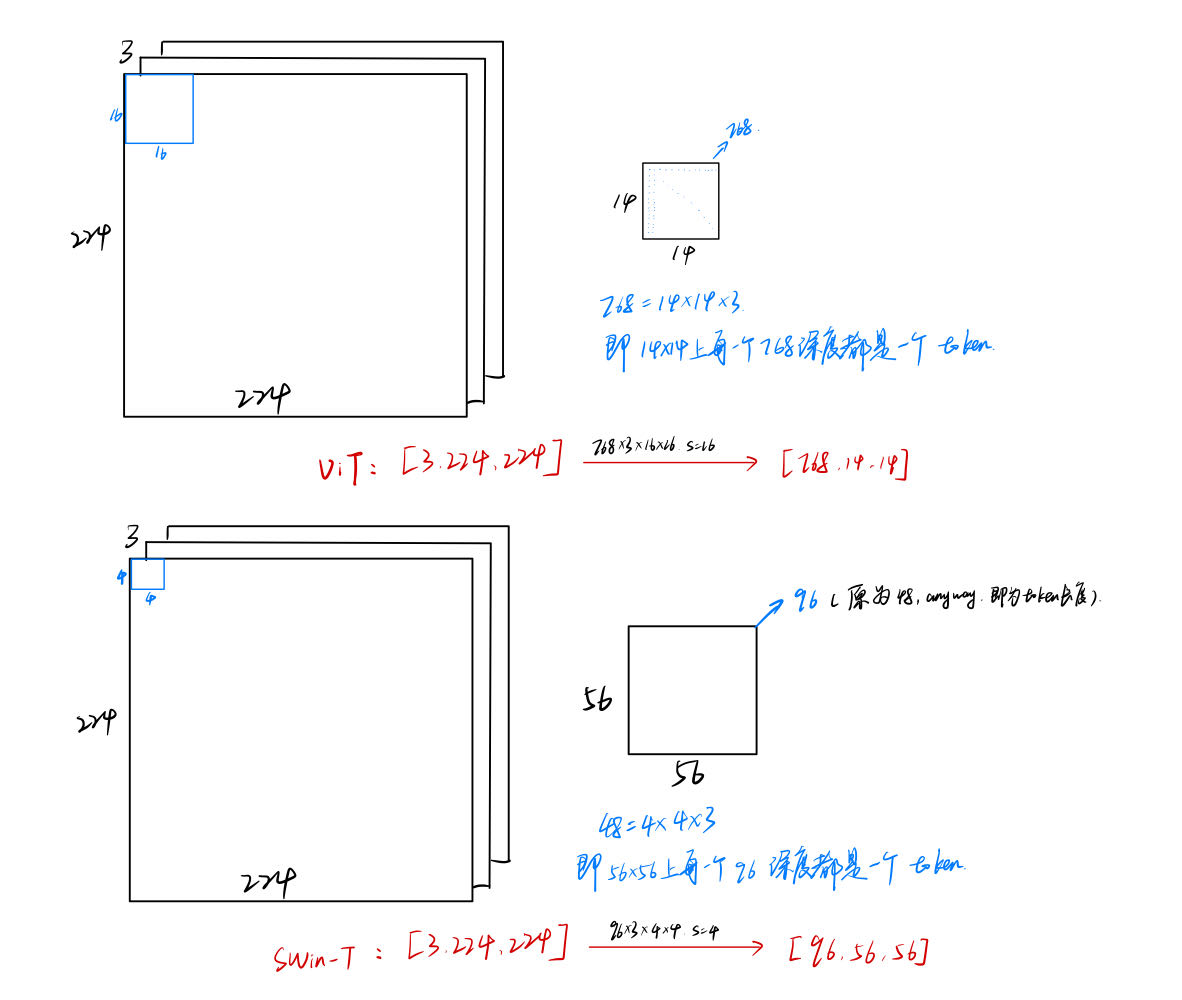 3
16
16
224
224
768.
14
14
768 = 14×14×3.
即 14×14上每一个768深度都是一个 token.
ViT: [3.224.224] 768×3×16×16. s=16 [768.14.14]
3
4
4
224
224
96 (原为48, anyway. 即为token长度).
56
56
48=4×4×3
即 56×56上每一个 96 深度都是一个 token.
Swin-T: [3.224.224] 96×3×4×4. s=4 [96.56.56]